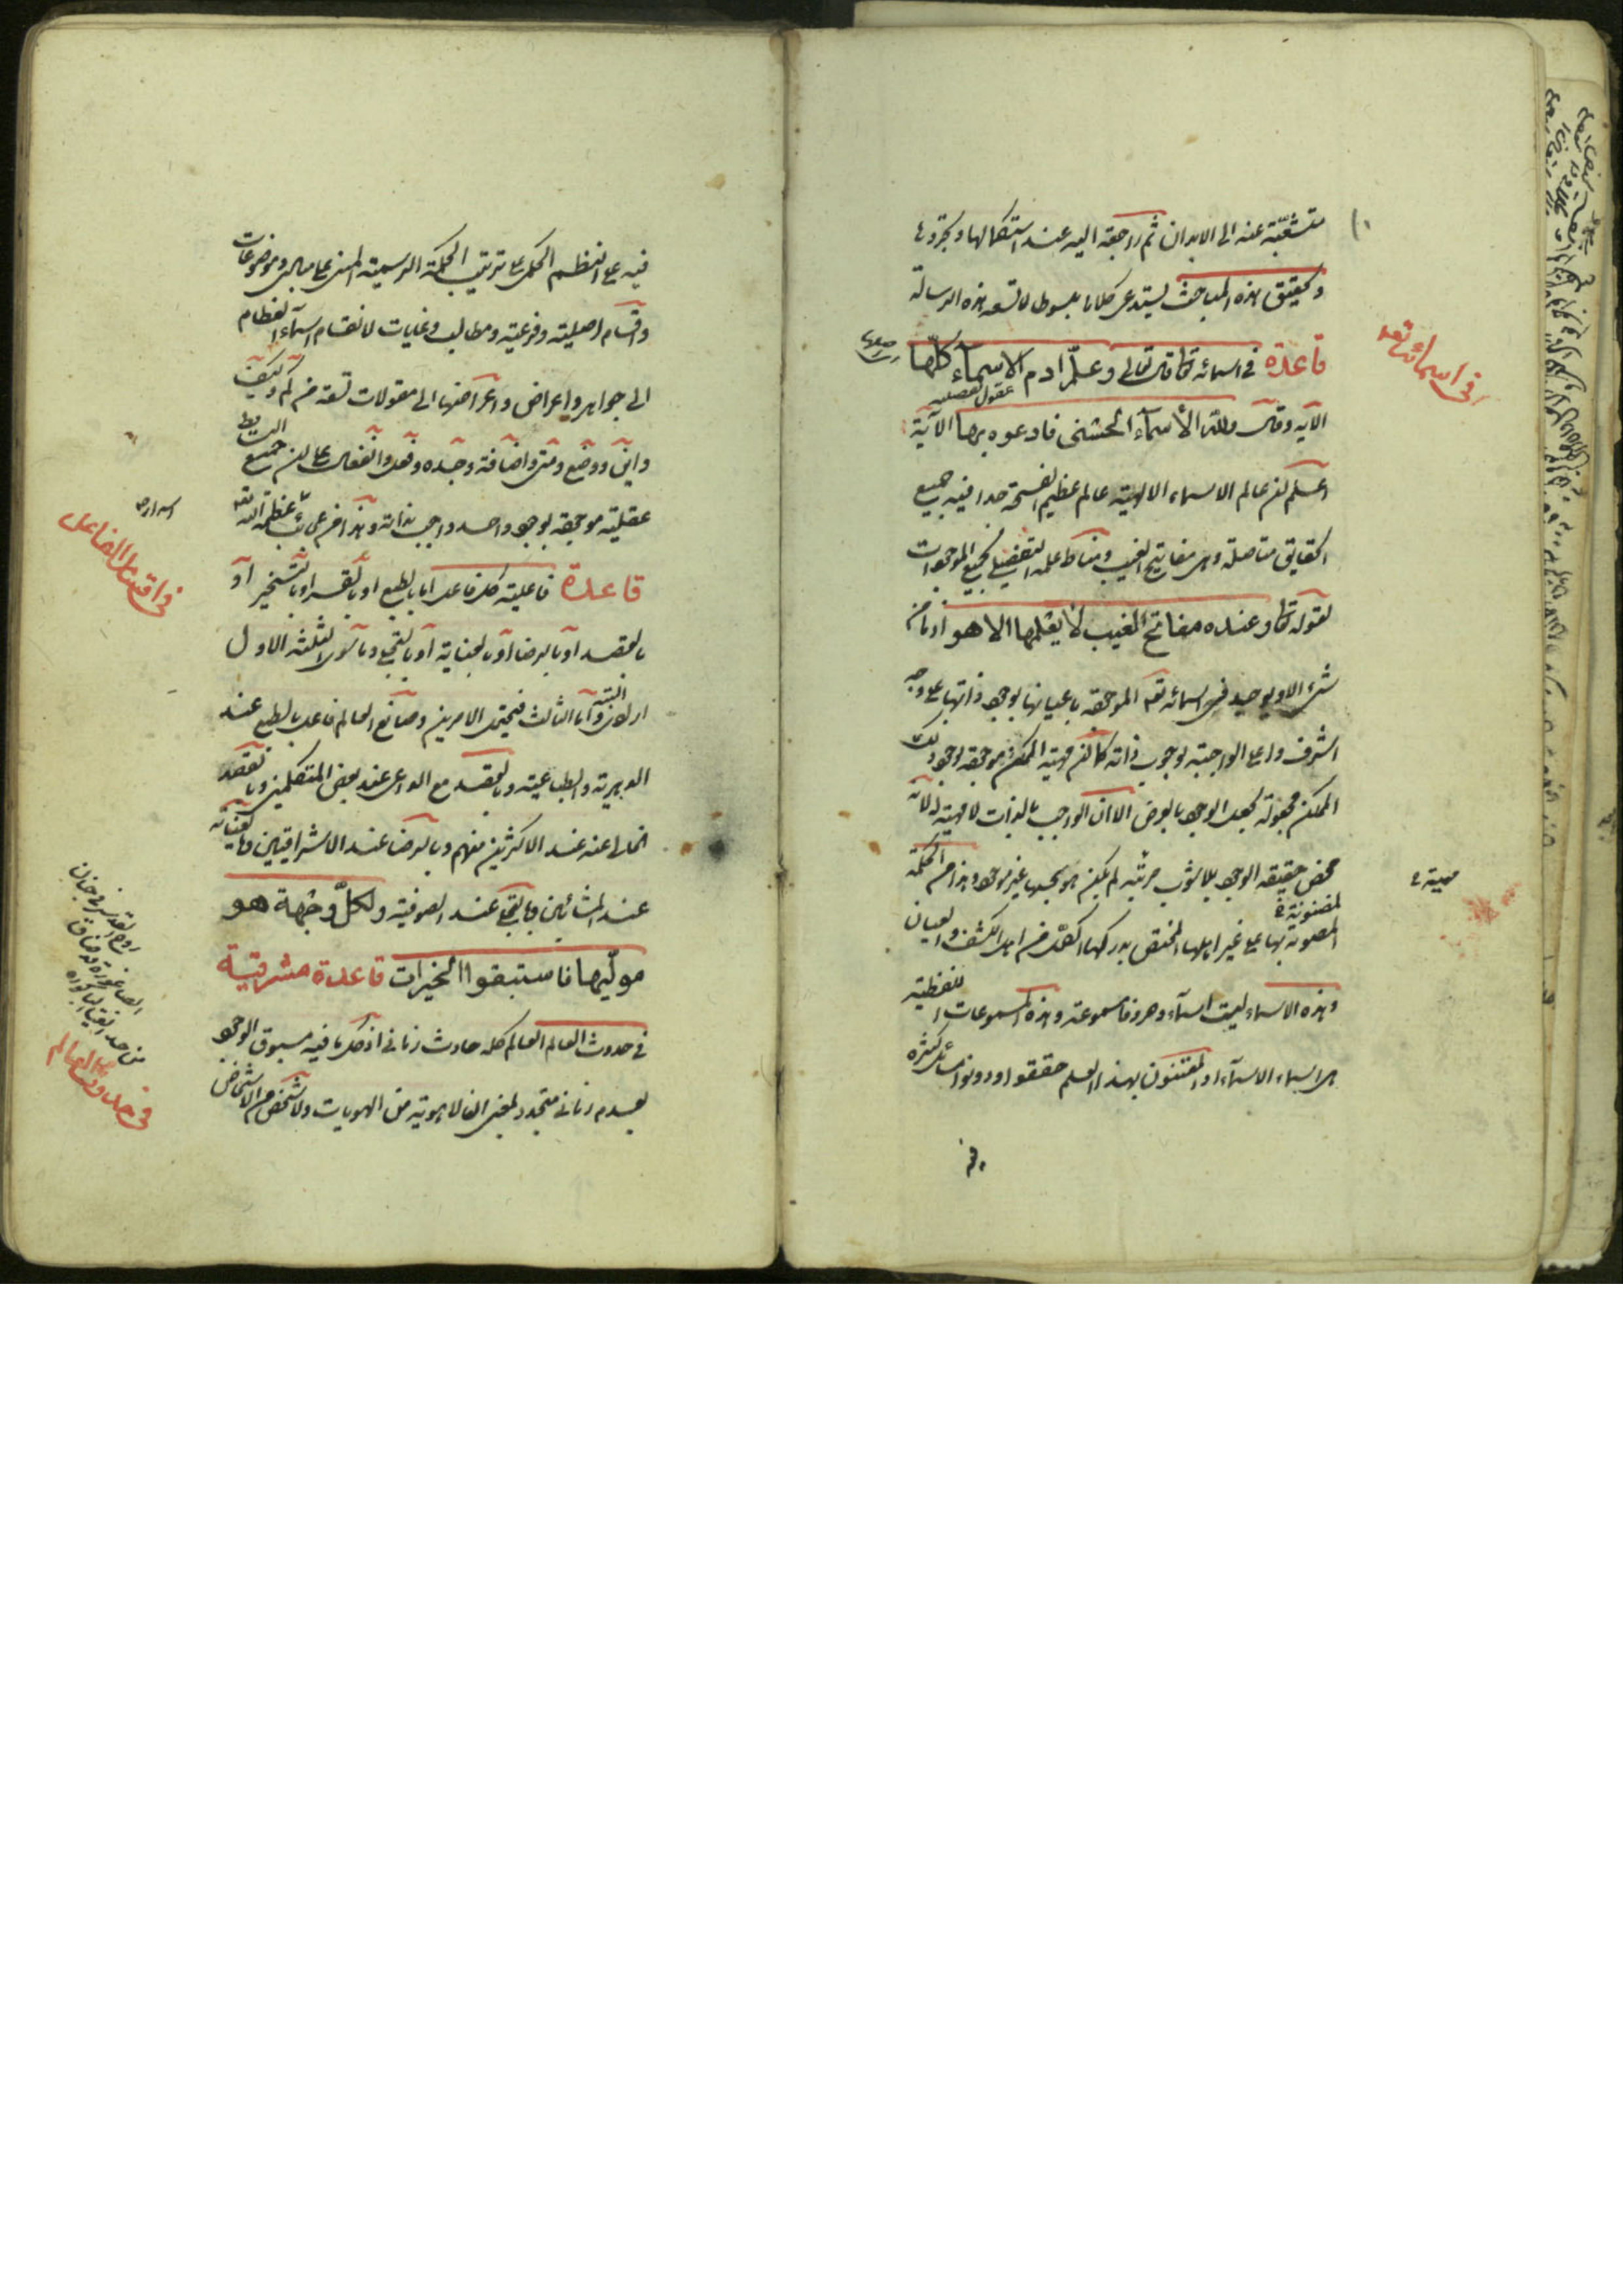 متشعبة عنه الى الابدان ثم راجعة اليه عند استكمالها وتجردها
وتحقيق هذه المباحث يستدعى كلاما مبسوطا لا تسعه هذه الرسالة
قاعدة فى اسمائه تعا قال تعالى وعلّم ادم الاسماء كلّها
الآية وقال ولله الأسماء الحسنى فادعوه بها الآية
اعلم ان عالم الاسماء الالهية عالم عظيم الفسحة جدا فيه جميع
الحقايق متاصلة وهى مفاتيح الغيب ومناط علمه التفصيلى بجميع الموجودات
لقوله تعا وعنده مفاتح الغيب لا يعلمها الا هو اذ ما من
شئ الا ويوجد فى اسمائه تعه الموجودة باعيانها بوجود ذاتها على وجه
اشرف واعلى الواجبة بوجوب ذاته كما ان مهية الممكن موجودة بوجود ذلك
الممكن مجعولة بجعل الوجود بالعرض الا ان الواجب بالذات لا مهية له لانه
محض حقيقة الوجود بلا شوب مرتبة لم يكن هو بحسبها غير موجود وهذا من الحكمة
المضنونة
المضنونة بها على غير اهلها المختص بدركها الكمّل من اهل الكشف والعيان
وهذه الاسماء ليست اسماء وحروفا مسموعة وهذه المسموعات اللفظية
هى اسماء الاسماء والمعتنون بهذا العلم حققوا ودونوا مسائل كثيرة
فى اسمائه تعه
مهية
فيه على النظم الحكمى على ترتيب الحكمة الرسمية المبنى على مبادى وموضوعات
واقسام اصلية وفرعية ومطالب وغايات لانقسام اسماء العظام
الى جواهر واعراض واعراضها الى مقولات تسعة من كم وكيف
واين ووضع ومتى واضافة وجدة وفعل وانفعال على ان جميع البسايط
عقلية موجودة بوجود واحد واجب بذاته وهذا من عجائب عظمة الله تعه
قاعدة فاعلية كل فاعل اما بالطبع او بالقسر او بالتسخير او
بالقصد او بالرضا او بالعناية او بالتجلى وما سوى الثلثة الاول
ارادى البتة واما الثالث فيحتمل الامرين وصانع العالم فاعل بالطبع عند
الدهرية والطباعية وبالقصد مع الداعى عند بعض المتكلمين وبالقصد
الخالى عنه عند الاكثرين منهم وبالرضا عند الاشراقيين وبالعناية
عند المشائين وبالتجلى عند الصوفية ولكلّ وجهة هو
مولّيها فاستبقوا الخيرات قاعدة مشرقية
فى حدوث العالم العالم كله حادث زمانى اذ كل ما فيه مسبوق الوجود
بعدم زمانى متجدد بمعنى ان لا هوية من الهويات ولا شخص من الاشخاص
فى اقسام الفاعل
فى حدوث العالم